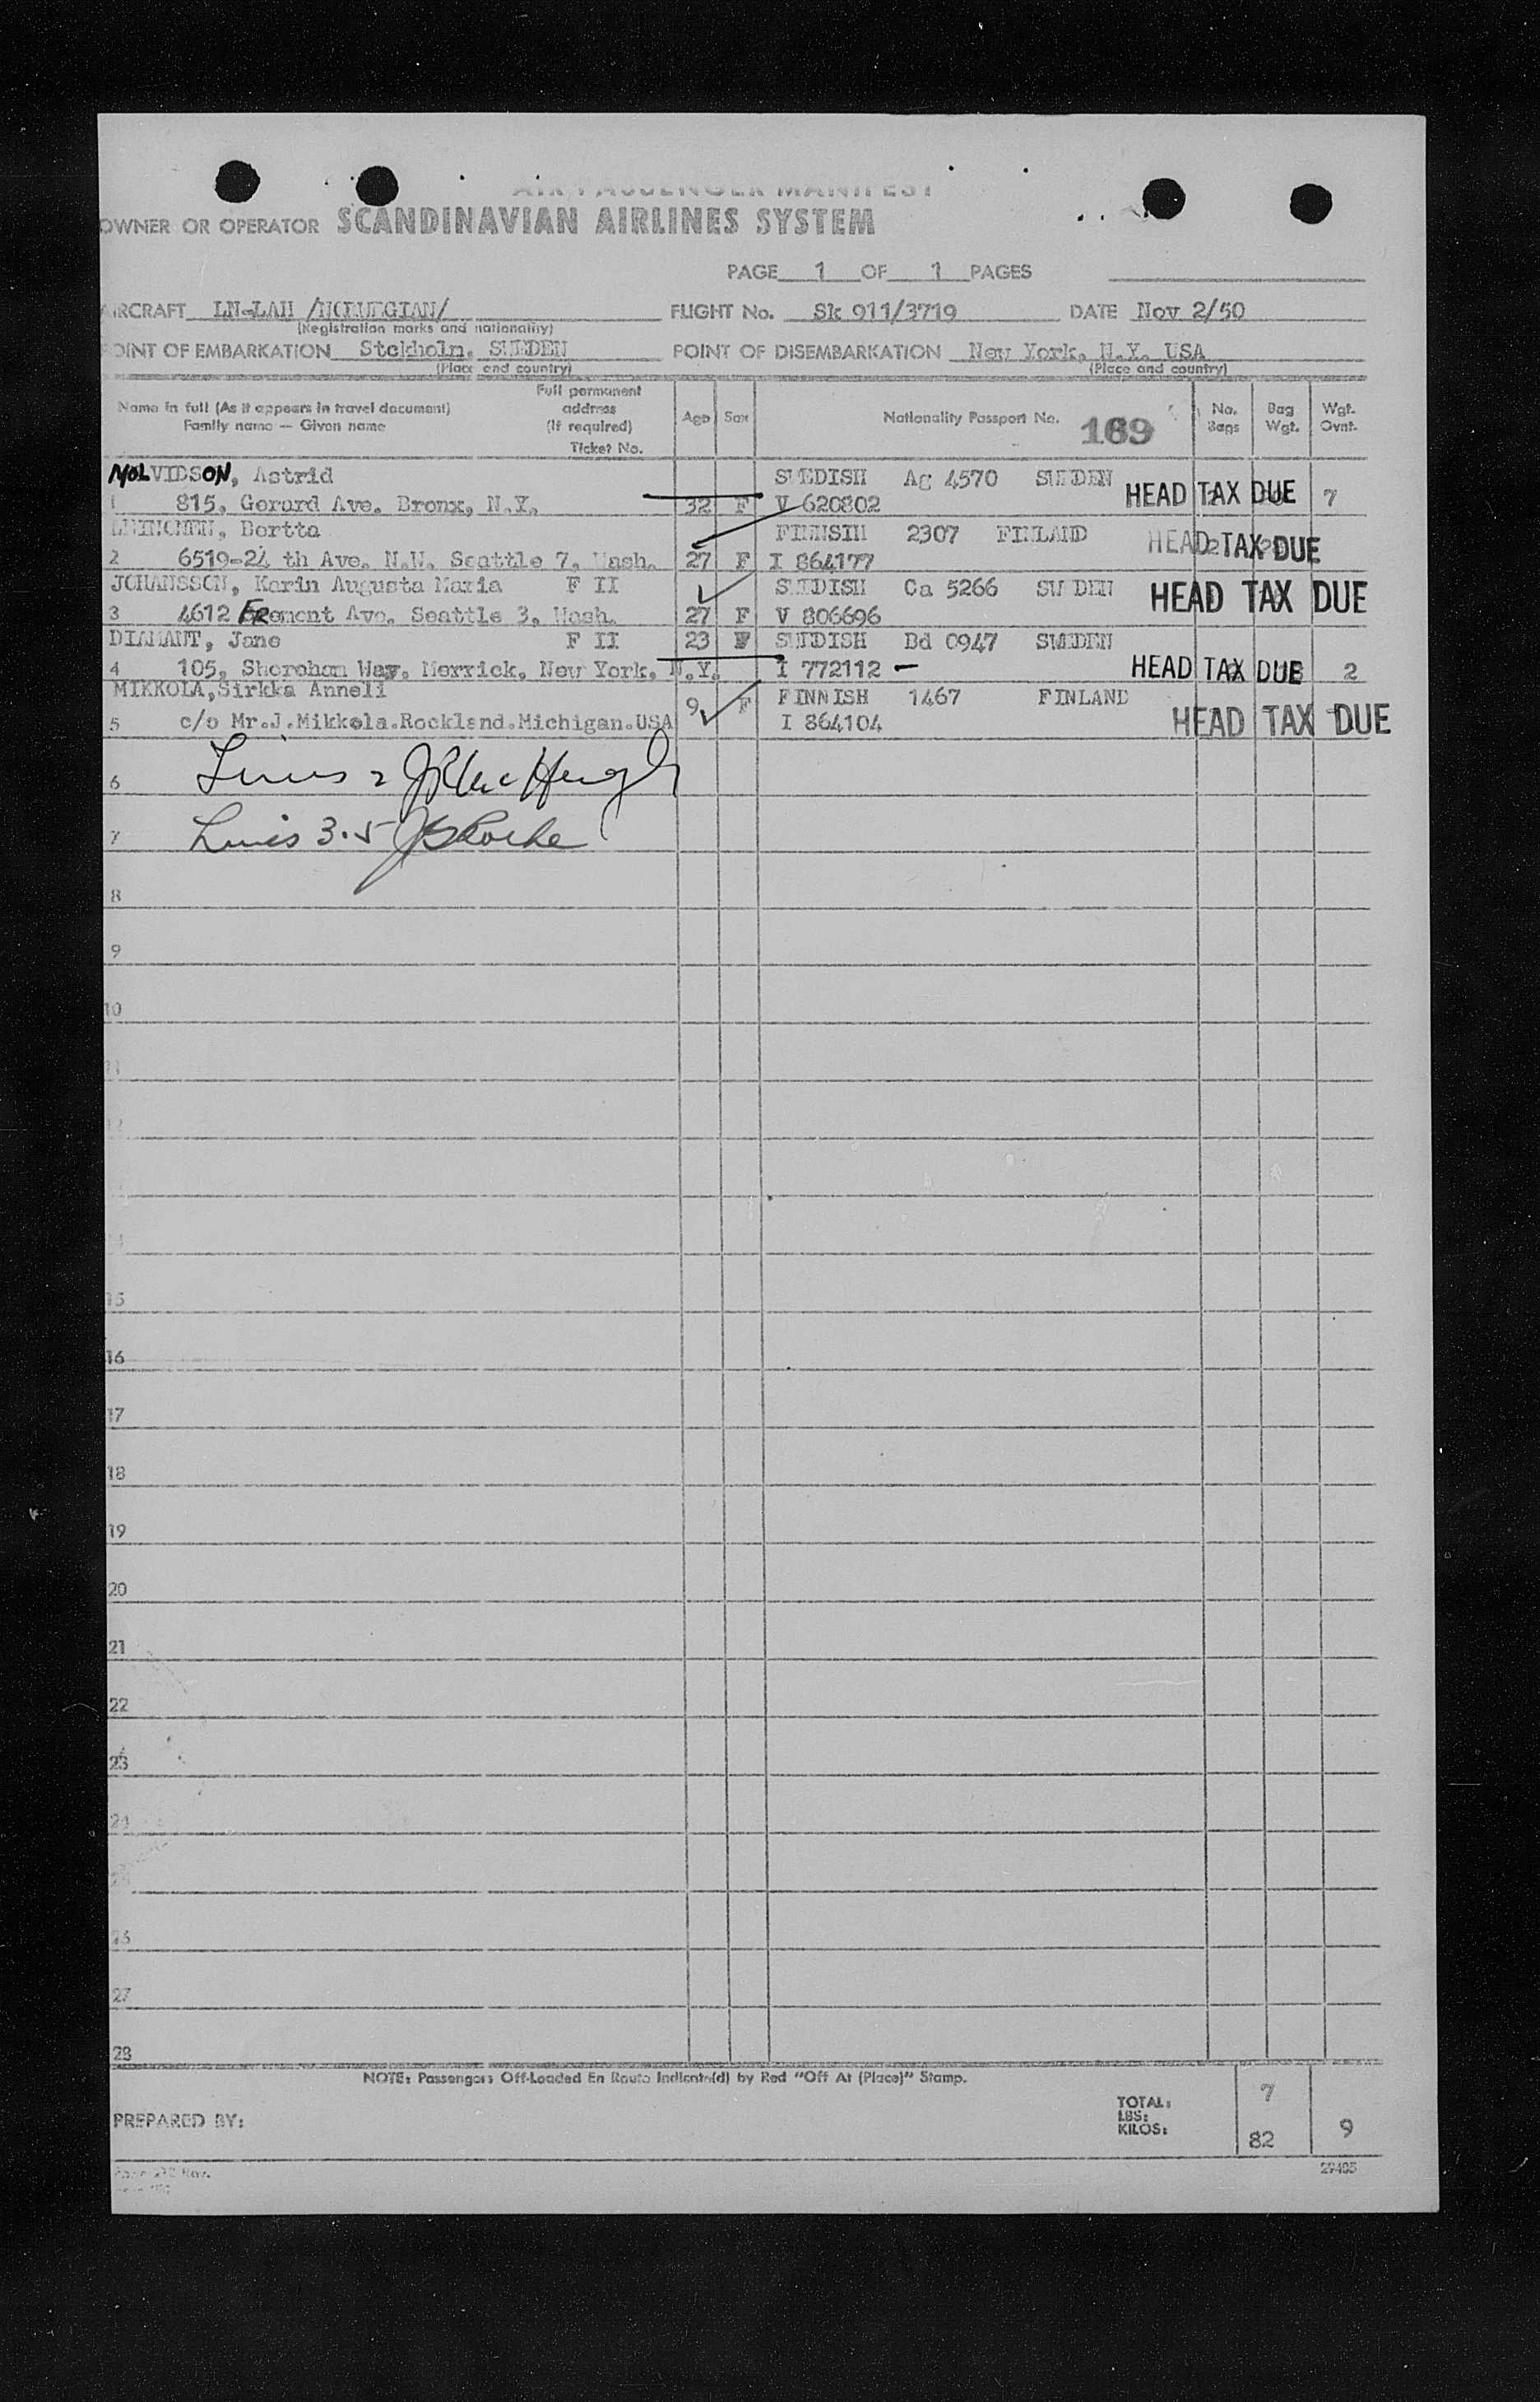 AIR PASSENGER MANIFEST
OWNER OR OPERATOR SCANDINAVIAN AIRLINES SYSTEM
PAGE 1 OF 1 PAGES
AIRCRAFT LN-LAH /NORWEGIAN/ FLIGHT No. Sk 911/3719 DATE Nov 2/50
(Registration marks and nationality)
POINT OF EMBARKATION Stokholm, SWEDEN POINT OF DISEMBARKATION New York, N.Y. USA
(Place and country) (Place and country)
Name in full (As it appears in travel document) Family name — Given name Full permanent address (If required) Ticket No. Age Sex Nationality Passport No. 169 No. Bags Bag Wgt. Wgt. Ovnt.
MOLVIDSON, Astrid SWEDISH Ag 4570 SWEDEN
1 815, Gerard Ave. Bronx, N.Y. 32 F V 620802 HEAD TAX DUE 7
Bertta FINNSIH 2307 FINLAND
2 6519-24 th Ave. N.W. Seattle 7, Wash. 27 F I 864177 HEAD TAX DUE
JOHANSSON, Karin Augusta Maria F II SWEDISH Ca 5266 SWEDEN HEAD TAX DUE
3 4612 FRemont Ave. Seattle 3, Wash. 27 F V 806696
DIAMANT, Jane F II 23 F SWEDISH Bd 0947 SWEDEN
4 105, Shoreham Way. Merrick, New York, N.Y. I 772112 — HEAD TAX DUE 2
MIKKOLA,Sirkka Anneli 9 F FINNISH 1467 FINLAND
5 c/o Mr.J.Mikkola.Rockland.Michigan.USA I 864104 HEAD TAX DUE
6 Lines 2
7 Lines 3-5
8
9
10
11
12
15
16
17
18
19
20
21
22
23
24
26
27
28
NOTE: Passengers Off-Loaded En Route Indicate(d) by Red "Off At (Place)" Stamp.
PREPARED BY:
TOTAL: 7
LBS:
KILOS: 82 9
29485